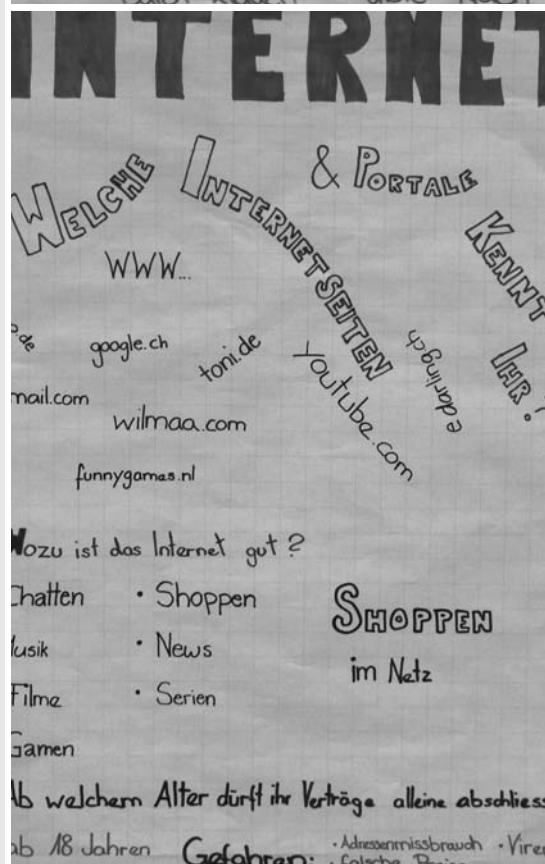 INTERNET
WELCHE INTERNETSEITEN & PORTALE KENNT IHR?
WWW...
google.ch
toni.de
youtube.com
edarling.ch
mail.com
wilmaa.com
funnygames.nl
Wozu ist das Internet gut?
Chatten · Shoppen
SHOPPEN
Musik · News
im Netz
Filme · Serien
Gamen
Ab welchem Alter dürft ihr Verträge alleine abschliess
ab 18 Jahren Gefahren: · Adressenmissbrauch · Viren
· falsche